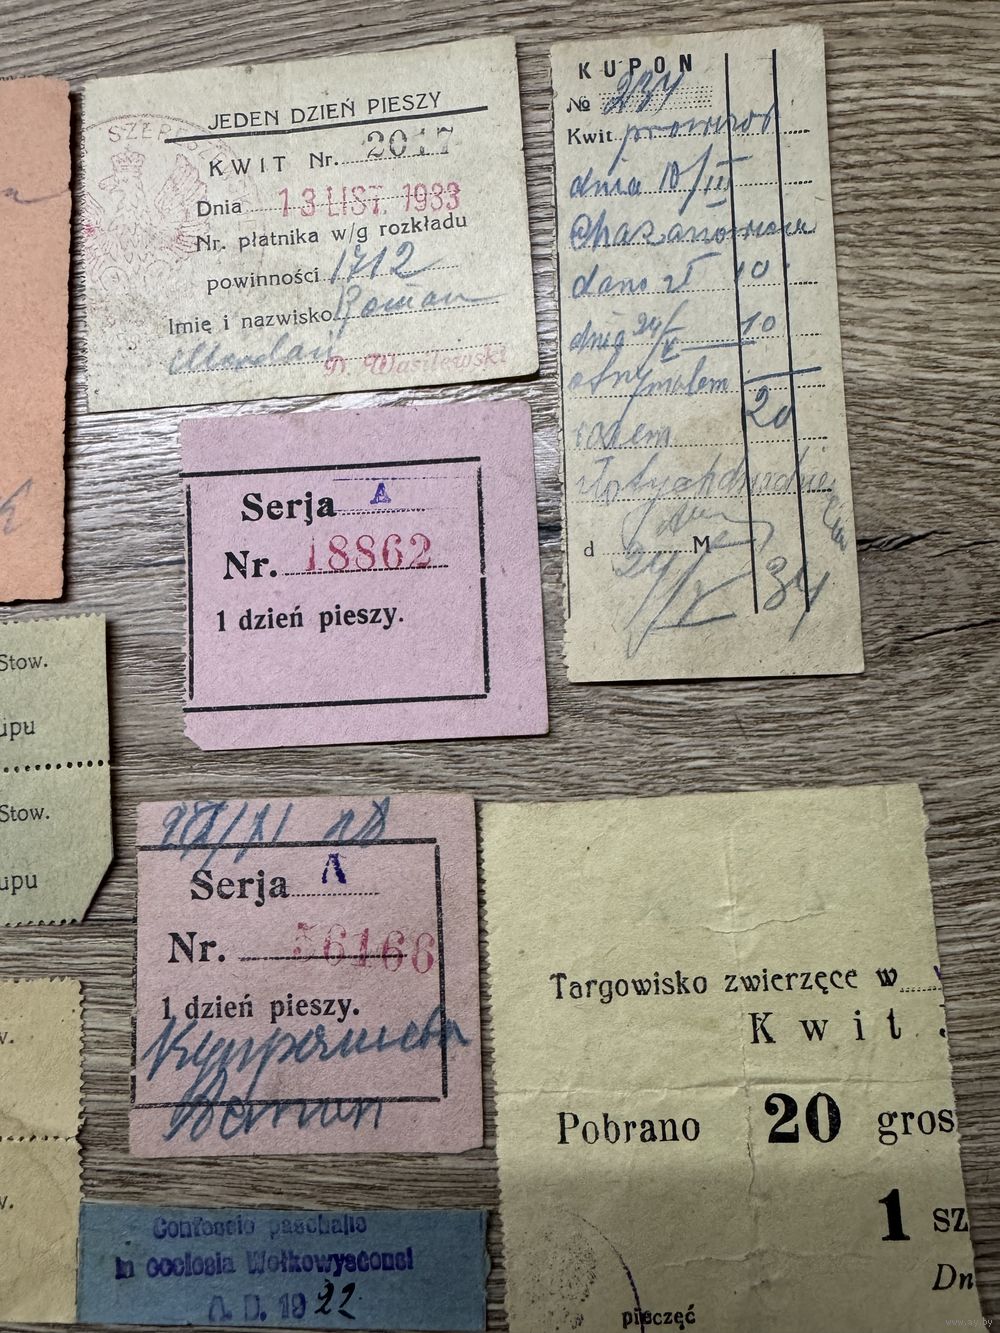 JEDEN DZIEŃ PIESZY
KWIT Nr. 2017
Dnia 13 LIST. 1933
Nr. płatnika w/g rozkładu
powinności 1712
Imię i nazwisko Roman
D. Wasilewski
KUPON
№ 234
Kwit
dnia 10/III
dano zł 10
dnia 24/V 10
otrzymałem
20
razem
d M
24/V 34
Serja A
Nr. 18862
1 dzień pieszy.
Stow.
upu
Stow.
upu
Serja A
Nr. 56166
1 dzień pieszy.
Roman
Targowisko zwierzęce w
Kwit
Pobrano 20 gros
1 sz
Dn
pieczęć
w.
w.
Confessio paschalis
in ecclesia Wołkowysconsi
A. D. 1922
www.ay.by